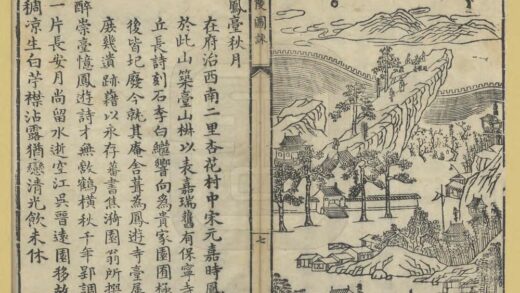 鳳臺秋月
在府治西南二里杏花村中宋元嘉時鳳
於此山築臺山椒以表嘉瑞舊有保寧寺
丘長詩刻石李白繼響向為貴家園囿極
後皆圮廢今就其庵舍葺為鳳遊寺臺
庶幾遺跡藉以永存蕃書焦漪園翁所撰
醉崇臺憶鳳遊詩才無敵鶴橫秋千年郢調
一片長安月尚留水逝空江吳晉遠園移故
稠凉生白苧襟沾露猶戀清光飲未休
陵圖詠
七